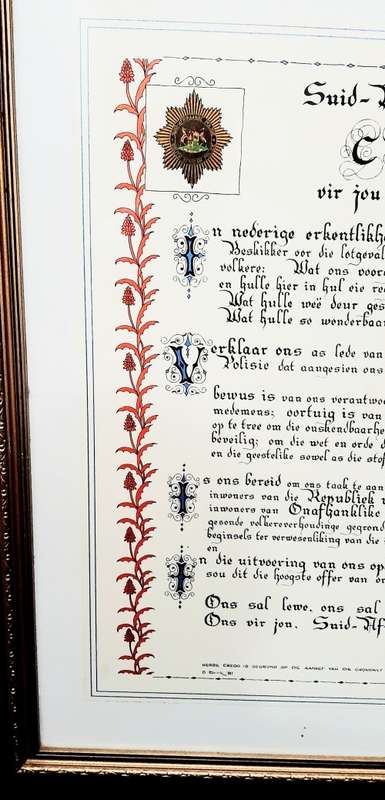 Suid-
C
vir jou
In nederige erkentlikh
Beskikker oor die lotgeval
volkere: Wat ons voor
en hulle hier in hul eie
Wat hulle weë deur ges
Wat hulle so wonderbaar
Verklaar ons as lede van
Polisie dat aangesien ons
bewus is van ons verantwoo
medemens; oortuig is van
op te tree om die onskendbaarhe
beveilig; om die wet en orde
en die geestelike sowel as die stof
Is ons bereid om ons taak te aan
inwoners van die Republiek
inwoners van Onafhanklike
gesonde volkereverhoudinge gegrond
beginsels ter verwesenliking van die
en
In die uitvoering van ons op
sou dit die hoogste offer van
Ons sal lewe, ons sal
Ons vir jou, Suid-Af
HIERDIE CREDO IS GEGROND OP DIE AANHEF VAN DIE GRONDWET